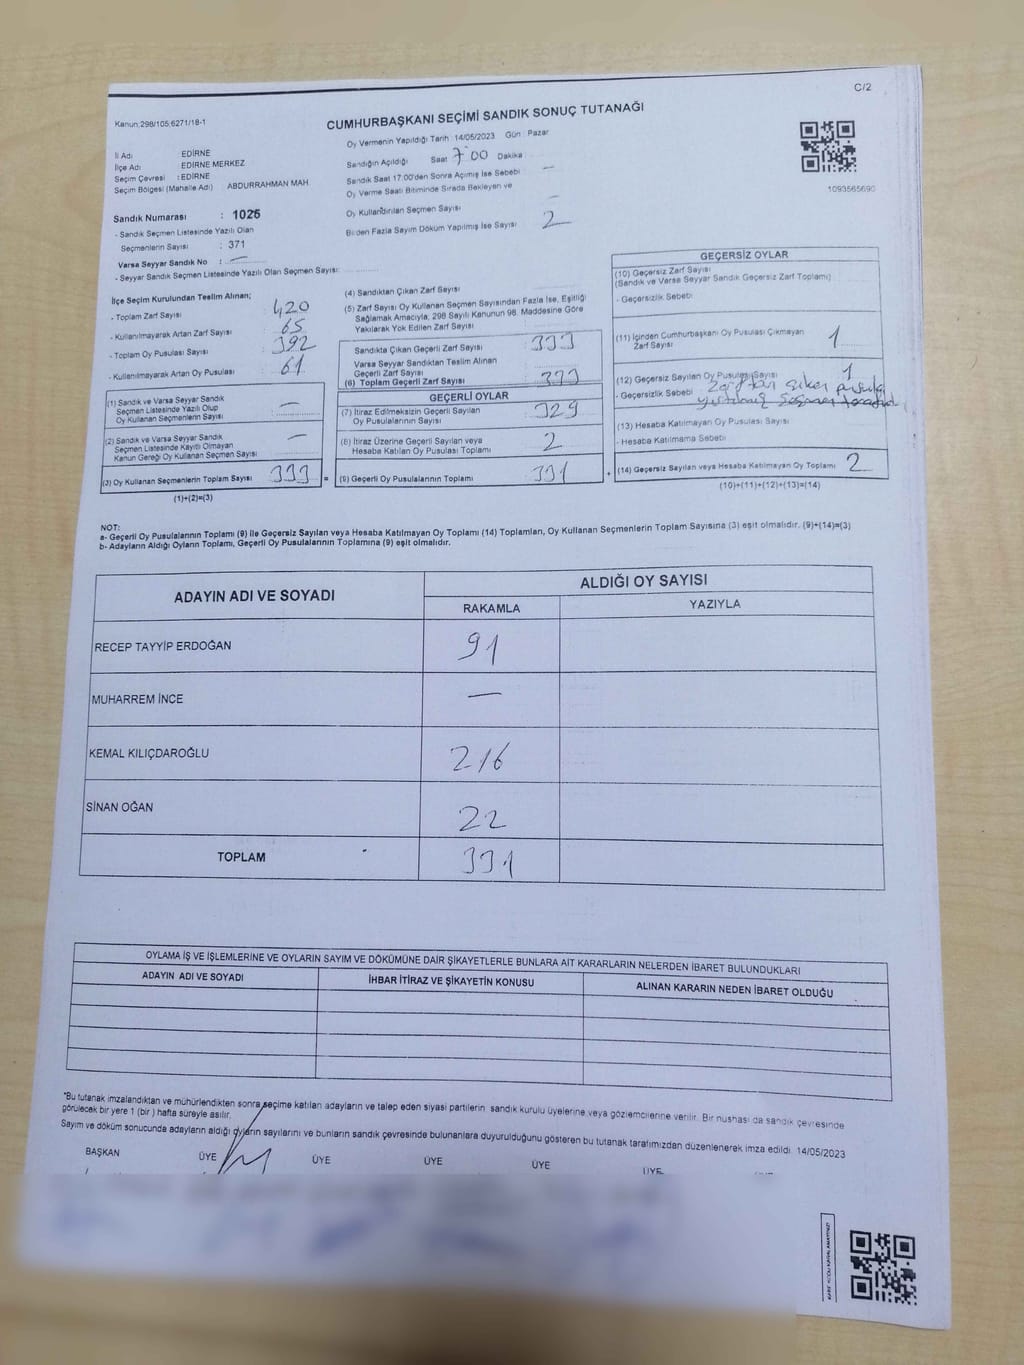 C/2
Kanun:298/105,6271/18-1
CUMHURBAŞKANI SEÇİMİ SANDIK SONUÇ TUTANAĞI
Oy Vermenin Yapıldığı Tarih 14/05/2023 Gün : Pazar
İl Adı : EDİRNE
İlçe Adı : EDİRNE MERKEZ
Seçim Çevresi : EDİRNE
Seçim Bölgesi (Mahalle Adı) ABDURRAHMAN MAH.
Sandığın Açıldığı Saat 7:00 Dakika
Sandık Saat 17:00'den Sonra Açımış İse Sebebi —
Oy Verme Saati Bitiminde Sırada Bekleyen ve
Oy Kullandırılan Seçmen Sayısı —
Birden Fazla Sayım Döküm Yapılmış İse Sayısı 2
1093565690
Sandık Numarası : 1025
- Sandık Seçmen Listesinde Yazılı Olan
Seçmenlerin Sayısı : 371
Varsa Seyyar Sandık No : —
- Seyyar Sandık Seçmen Listesinde Yazılı Olan Seçmen Sayısı:
İlçe Seçim Kurulundan Teslim Alınan;
- Toplam Zarf Sayısı : 420
- Kullanılmayarak Artan Zarf Sayısı : 65
- Toplam Oy Pusulası Sayısı : 392
- Kullanılmayarak Artan Oy Pusulası : 61
(1) Sandık ve Varsa Seyyar Sandık
Seçmen Listesinde Yazılı Olup
Oy Kullanan Seçmenlerin Sayısı : —
(2) Sandık ve Varsa Seyyar Sandık
Seçmen Listesinde Kayıtlı Olmayan
Kanun Gereği Oy Kullanan Seçmen Sayısı : —
(3) Oy Kullanan Seçmenlerin Toplam Sayısı : 333
(1)+(2)=(3)
(4) Sandıktan Çıkan Zarf Sayısı :
(5) Zarf Sayısı Oy Kullanan Seçmen Sayısından Fazla İse, Eşitliği
Sağlamak Amacıyla, 298 Sayılı Kanunun 98. Maddesine Göre
Yakılarak Yok Edilen Zarf Sayısı :
Sandıkta Çıkan Geçerli Zarf Sayısı : 333
Varsa Seyyar Sandıktan Teslim Alınan
Geçerli Zarf Sayısı :
(6) Toplam Geçerli Zarf Sayısı : 333
GEÇERLİ OYLAR
(7) İtiraz Edilmeksizin Geçerli Sayılan
Oy Pusulalarının Sayısı : 329
(8) İtiraz Üzerine Geçerli Sayılan veya
Hesaba Katılan Oy Pusulası Toplamı : 2
= (9) Geçerli Oy Pusulalarının Toplamı : 331
GEÇERSİZ OYLAR
(10) Geçersiz Zarf Sayısı :
(Sandık ve Varsa Seyyar Sandık Geçersiz Zarf Toplamı)
- Geçersizlik Sebebi :
(11) İçinden Cumhurbaşkanı Oy Pusulası Çıkmayan
Zarf Sayısı : 1
(12) Geçersiz Sayılan Oy Pusulası Sayısı : 1
- Geçersizlik Sebebi Zarftan çıkan pusula
yırtılmış seçmen
(13) Hesaba Katılmayan Oy Pusulası Sayısı :
- Hesaba Katılmama Sebebi :
+ (14) Geçersiz Sayılan veya Hesaba Katılmayan Oy Toplamı : 2
(10)+(11)+(12)+(13)=(14)
NOT:
a- Geçerli Oy Pusulalarının Toplamı (9) ile Geçersiz Sayılan veya Hesaba Katılmayan Oy Toplamı (14) Toplamları, Oy Kullanan Seçmenlerin Toplam Sayısına (3) eşit olmalıdır. (9)+(14)=(3)
b- Adayların Aldığı Oyların Toplamı, Geçerli Oy Pusulalarının Toplamına (9) eşit olmalıdır.
ADAYIN ADI VE SOYADI ALDIĞI OY SAYISI
RAKAMLA YAZIYLA
RECEP TAYYİP ERDOĞAN 91
MUHARREM İNCE —
KEMAL KILIÇDAROĞLU 216
SİNAN OĞAN 22
TOPLAM 331
OYLAMA İŞ VE İŞLEMLERİNE VE OYLARIN SAYIM VE DÖKÜMÜNE DAİR ŞİKAYETLERLE BUNLARA AİT KARARLARIN NELERDEN İBARET BULUNDUKLARI
ADAYIN ADI VE SOYADI İHBAR İTİRAZ VE ŞİKAYETİN KONUSU ALINAN KARARIN NEDEN İBARET OLDUĞU
*Bu tutanak imzalandıktan ve mühürlendikten sonra seçime katılan adayların ve talep eden siyasi partilerin sandık kurulu üyelerine veya gözlemcilerine verilir. Bir nushası da sandık çevresinde
görülecek bir yere 1 (bir) hafta süreyle asılır.
Sayım ve döküm sonucunda adayların aldığı oyların sayılarını ve bunların sandık çevresinde bulunanlara duyurulduğunu gösteren bu tutanak tarafımızdan düzenlenerek imza edildi. 14/05/2023
BAŞKAN ÜYE ÜYE ÜYE ÜYE ÜYE